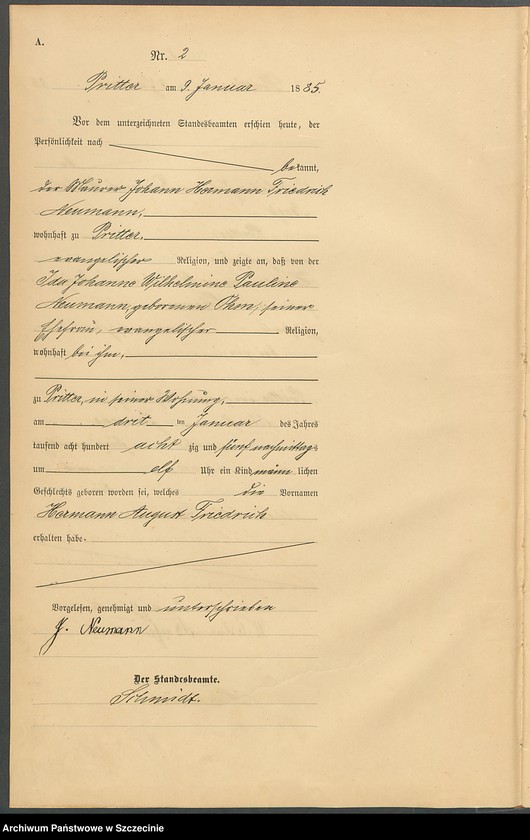 A.
Nr. 2
Pritter am 9. Januar 1885.
Vor dem unterzeichneten Standesbeamten erschien heute, der
Persönlichkeit nach
bekannt,
der Maurer Johann Hermann Friedrich
Neumann,
wohnhaft zu Pritter,
evangelischer Religion, und zeigte an, daß von der
Ida Johanne Wilhelmine Pauline
Neumann, geborenen Thom, seiner
Ehefrau, evangelischer Religion,
wohnhaft bei ihm,
zu Pritter, in seiner Wohnung,
am drit ten Januar des Jahres
tausend acht hundert acht zig und fünf nachmittags
um elf Uhr ein Kind männ lichen
Geschlechts geboren worden sei, welches die Vornamen
Hermann August Friedrich
erhalten habe.
Vorgelesen, genehmigt und unterschrieben
J. Neumann
Der Standesbeamte.
Schmidt.
Archiwum Państwowe w Szczecinie